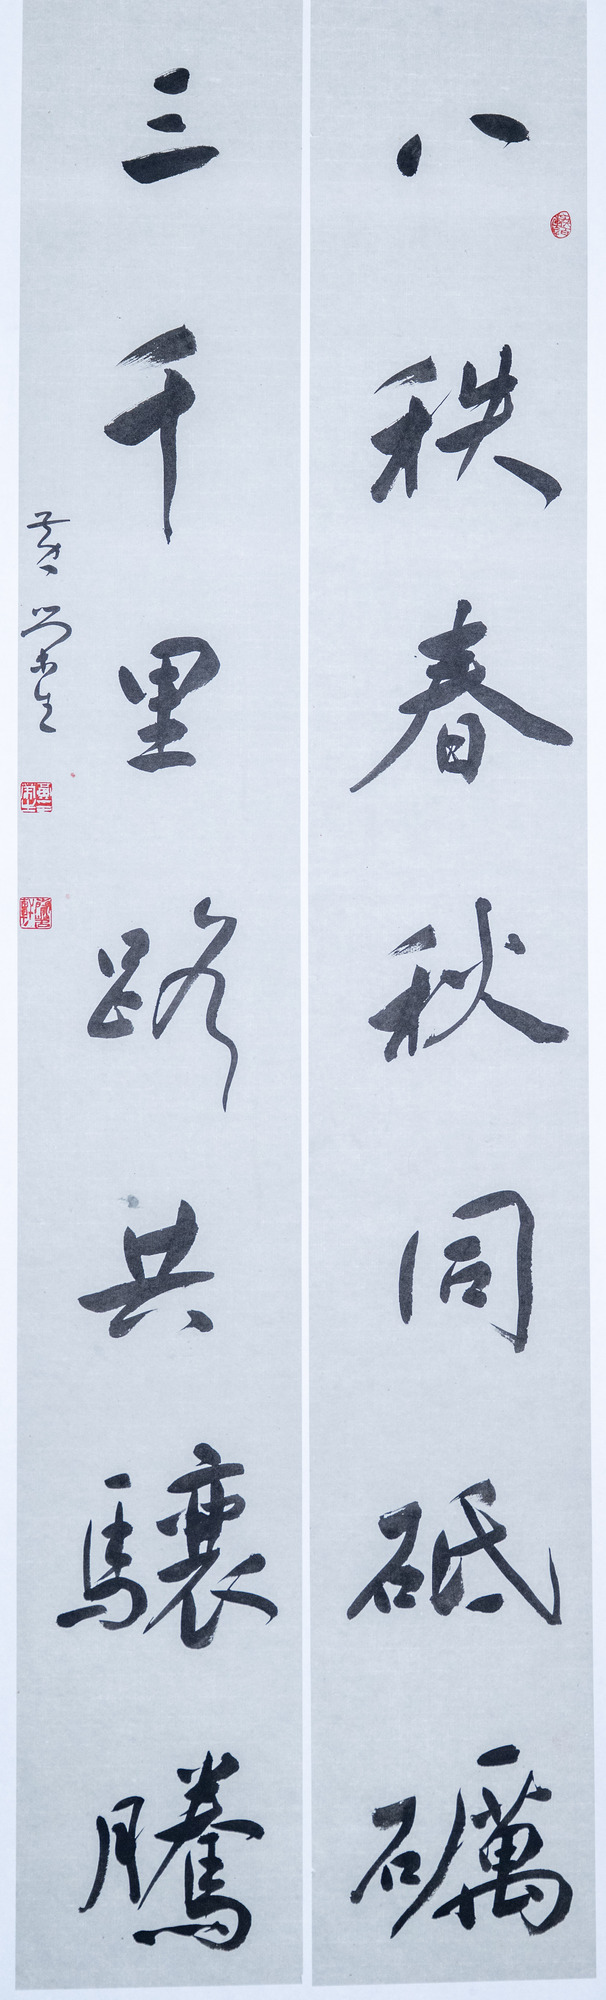 八秩春秋同砥礪
三千里路共驤騰